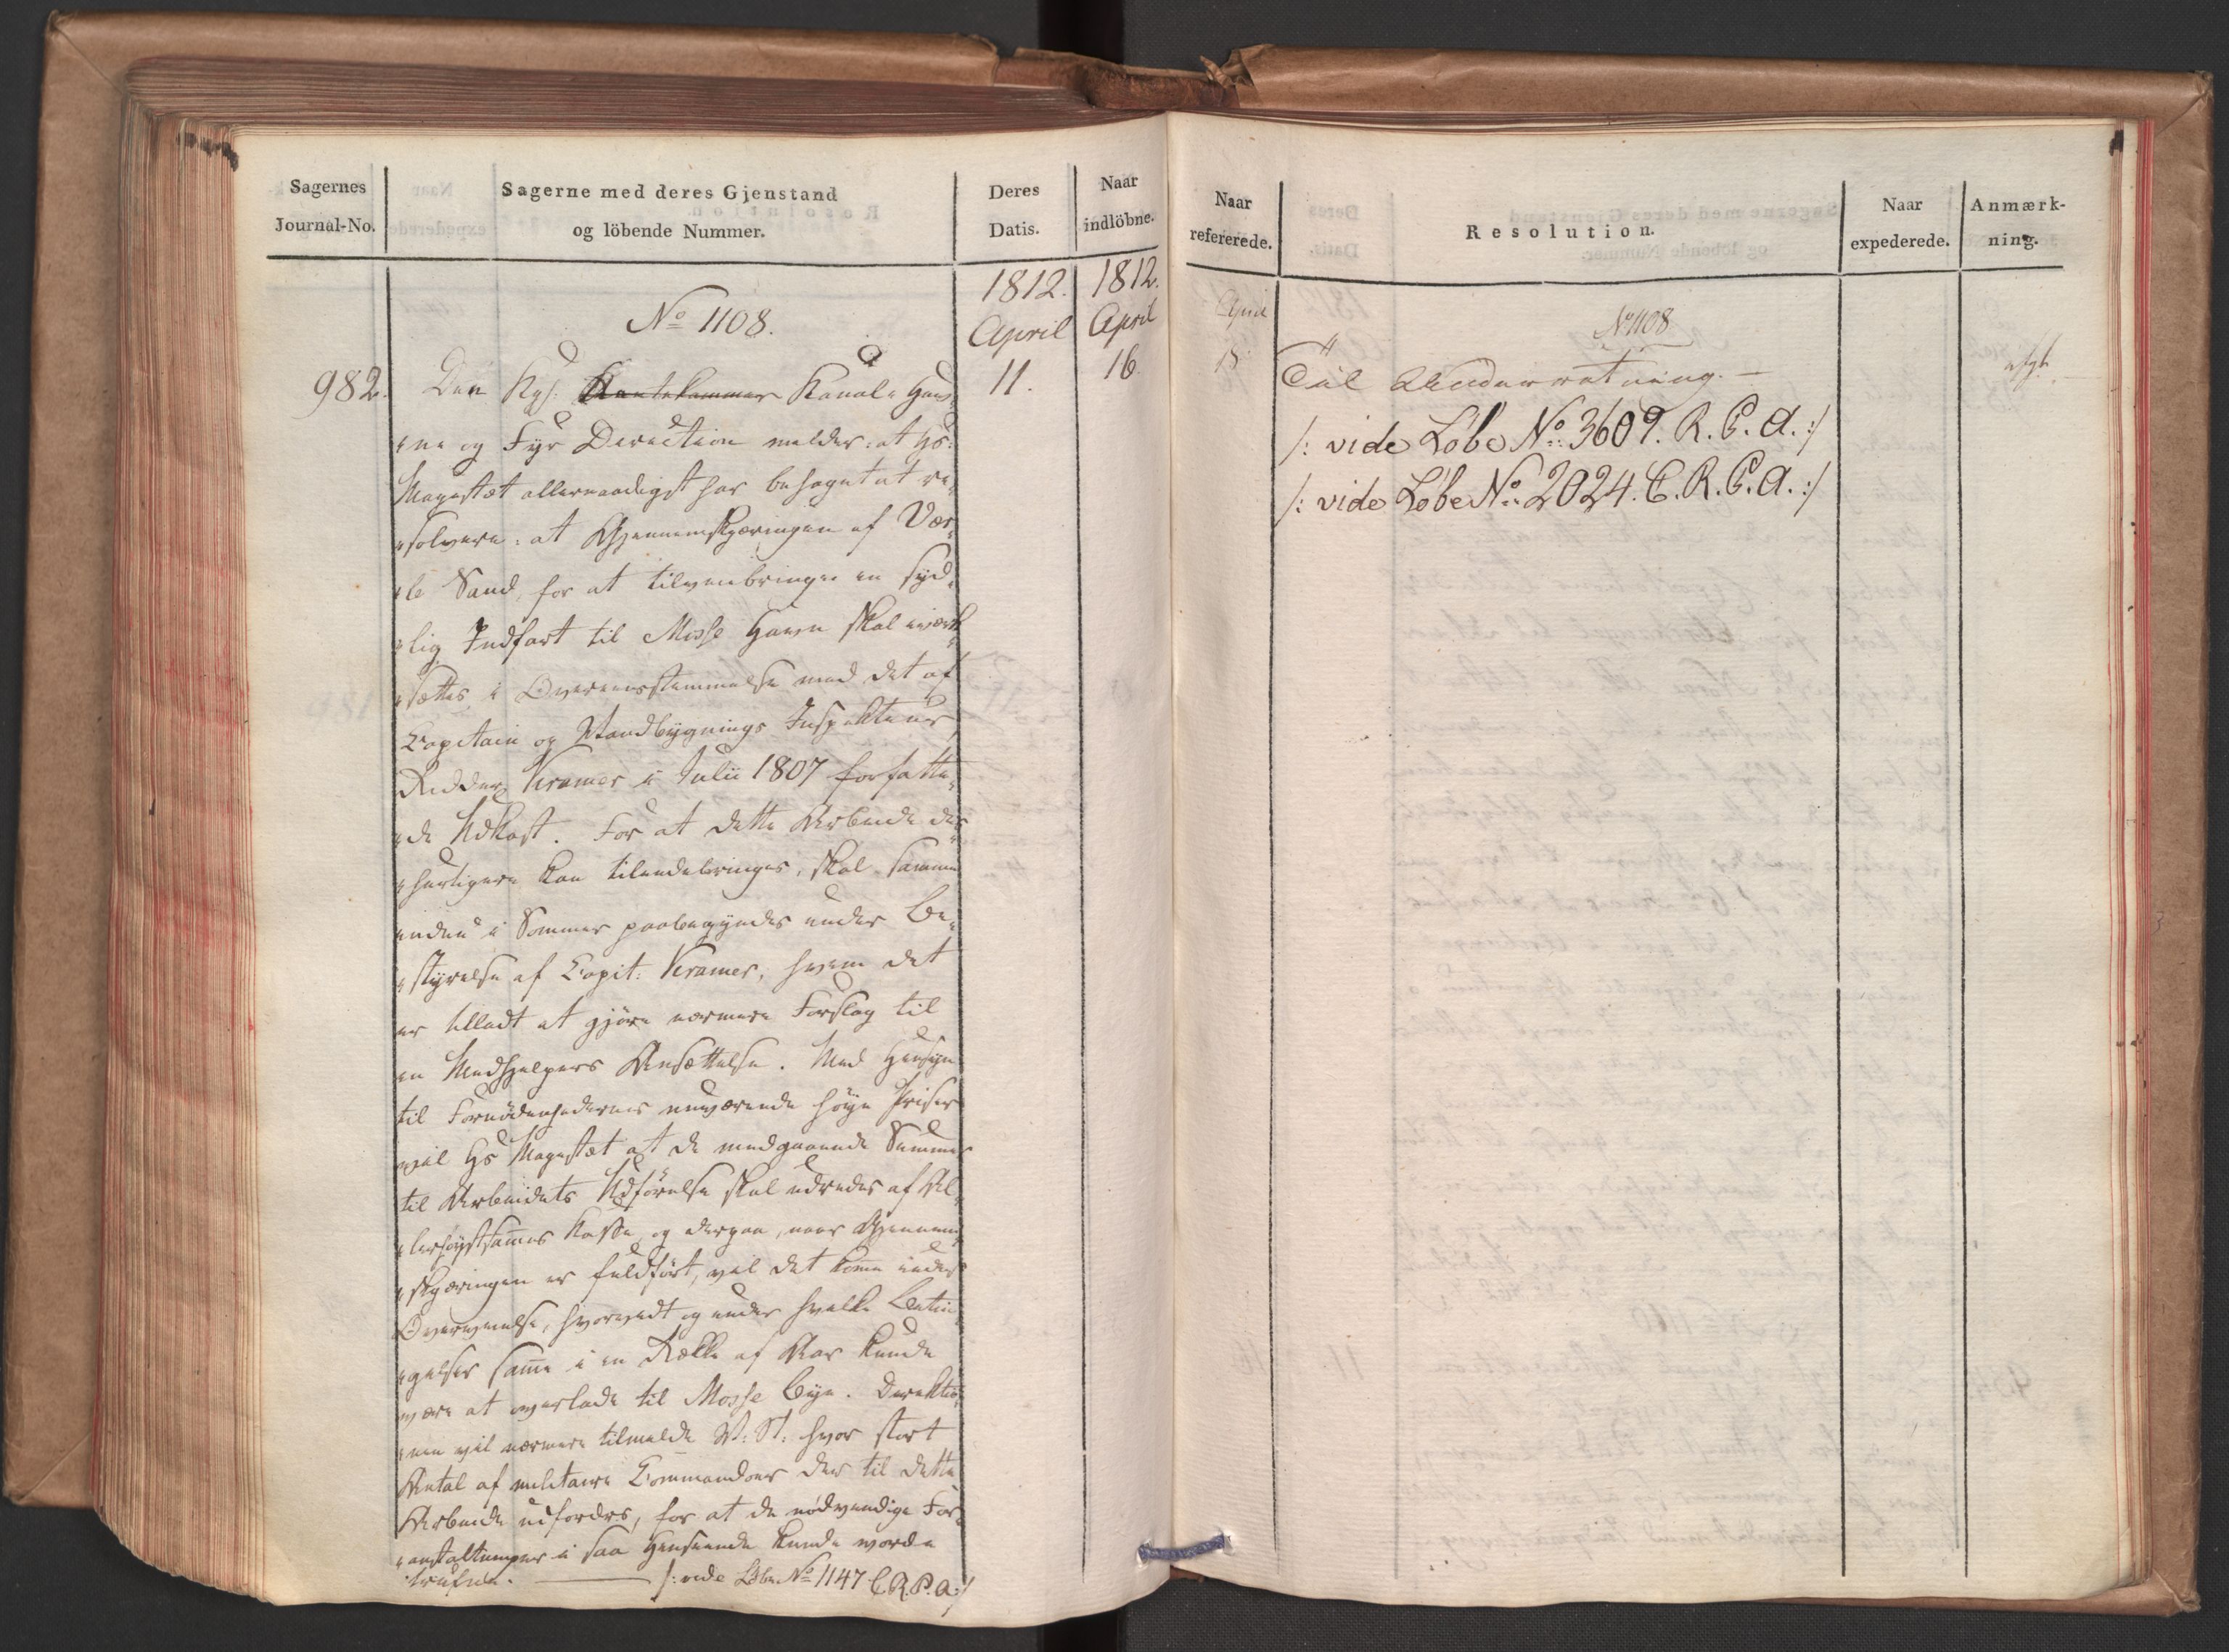 Sagernes
Journal-No.
Sagerne med deres Gjenstand
og löbende Nummer.
Deres
Datis.
Naar
indlöbne.
1812.
April
11.
1812.
April
16.
No 1108.
982.
Den Kgl. Rentekammer Kanal- Hav-
ne og Fyr Direction melder: at Hs:
Majestæt allernaadigst har behaget at re-
solvere: at Gjennemskjæringen af Vær-
le Sand, for at tilveiebringe en syd-
lig Indfart til Mosse Havn skal iværk-
sættes i Overeensstemmelse med det af
Capitain og Vandbygnings Inspekteur
Ridder Kramer i Julii 1807 forfatte-
de Udkast. For at dette Arbeide des
hurtigere kan tilendebringes, skal samme
endnu i Sommer paabegyndes under Be-
styrelse af Capit: Kramer, hvem det
er tilladt at gjöre nærmere Forslag til
en Medhjelpers Ansættelse. Med Hensyn
til Fornödenhedernes nuværende höye Priser
vil Hs Majestæt at de medgaaende Summer
til Arbeidets Udförelse skal udredes af Al-
lerhöystsammes Kasse, og derpaa, naar Gjennem-
skjæringen er fuldfört, vil det komme under
Overveielse, hvorvidt og under hvilke Betin-
gelser samme i en Række af Aar kunde
være at overlade til Mosse Bye. Direktio-
nen vil nærmere tilmelde W: St: hvor stort
Antal af militaire Commandoer der til dette
Arbeide udfordres, for at de nödvendige For-
anstaltninger i saa Henseende kunde worde
trufne. /: vide Löbe No 1147 C.R.P.A :/
Naar
refererede.
Resolution.
Naar
expederede.
Anmærk-
ning.
April
18
No 1108
Til Underretning. —
/: vide Löbe No: 3609. R. P. A. :/
/: vide Löbe No: 2024. C. R. P. A. :/